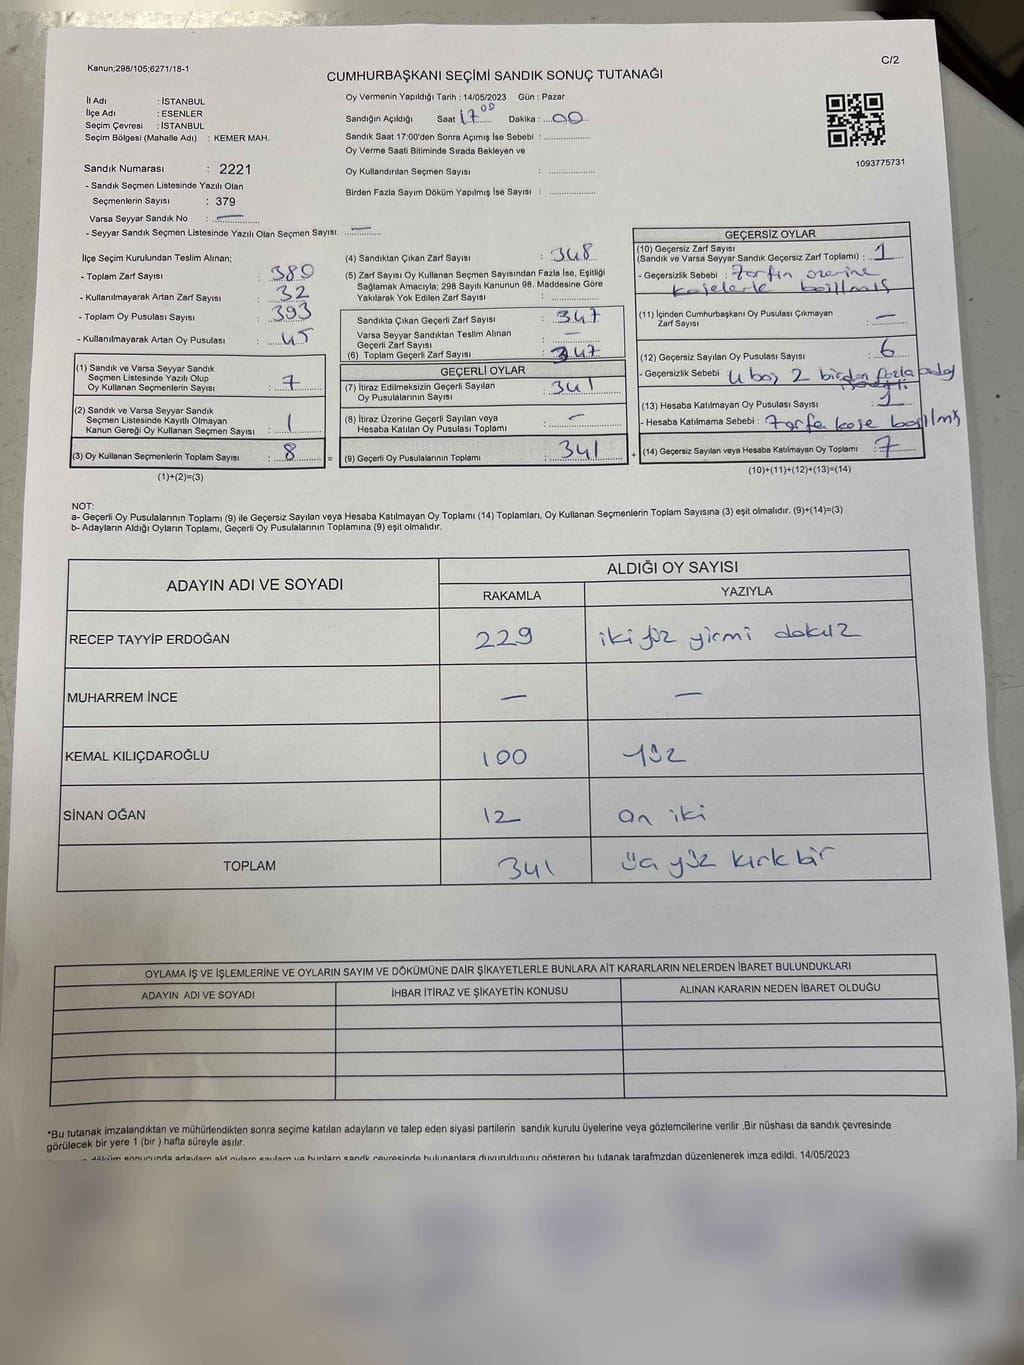 Kanun;298/105;6271/18-1
C/2
CUMHURBAŞKANI SEÇİMİ SANDIK SONUÇ TUTANAĞI
İl Adı : İSTANBUL
İlçe Adı : ESENLER
Seçim Çevresi : İSTANBUL
Seçim Bölgesi (Mahalle Adı) : KEMER MAH.
Oy Vermenin Yapıldığı Tarih : 14/05/2023 Gün : Pazar
Sandığın Açıldığı Saat 17 00 Dakika : 00
Sandık Saat 17:00'den Sonra Açımış İse Sebebi :
Oy Verme Saati Bitiminde Sırada Bekleyen ve
Oy Kullandırılan Seçmen Sayısı :
Birden Fazla Sayım Döküm Yapılmış İse Sayısı :
1093775731
Sandık Numarası : 2221
- Sandık Seçmen Listesinde Yazılı Olan
Seçmenlerin Sayısı : 379
Varsa Seyyar Sandık No : —
- Seyyar Sandık Seçmen Listesinde Yazılı Olan Seçmen Sayısı: —
İlçe Seçim Kurulundan Teslim Alınan;
- Toplam Zarf Sayısı : 380
- Kullanılmayarak Artan Zarf Sayısı : 32
- Toplam Oy Pusulası Sayısı : 393
- Kullanılmayarak Artan Oy Pusulası : 45
(1) Sandık ve Varsa Seyyar Sandık
Seçmen Listesinde Yazılı Olup
Oy Kullanan Seçmenlerin Sayısı : 7
(2) Sandık ve Varsa Seyyar Sandık
Seçmen Listesinde Kayıtlı Olmayan
Kanun Gereği Oy Kullanan Seçmen Sayısı : 1
(3) Oy Kullanan Seçmenlerin Toplam Sayısı : 8
(1)+(2)=(3)
(4) Sandıktan Çıkan Zarf Sayısı : 348
(5) Zarf Sayısı Oy Kullanan Seçmen Sayısından Fazla İse, Eşitliği
Sağlamak Amacıyla; 298 Sayılı Kanunun 98. Maddesine Göre
Yakılarak Yok Edilen Zarf Sayısı :
Sandıkta Çıkan Geçerli Zarf Sayısı : 347
Varsa Seyyar Sandıktan Teslim Alınan
Geçerli Zarf Sayısı : —
(6) Toplam Geçerli Zarf Sayısı : 347
GEÇERLİ OYLAR
(7) İtiraz Edilmeksizin Geçerli Sayılan
Oy Pusulasının Sayısı : 341
(8) İtiraz Üzerine Geçerli Sayılan veya
Hesaba Katılan Oy Pusulası Toplamı : —
= (9) Geçerli Oy Pusulalarının Toplamı : 341
GEÇERSİZ OYLAR
(10) Geçersiz Zarf Sayısı
(Sandık ve Varsa Seyyar Sandık Geçersiz Zarf Toplamı) : 1
- Geçersizlik Sebebi : Zarfın üzerine
kaşelerle basılmış
(11) İçinden Cumhurbaşkanı Oy Pusulası Çıkmayan
Zarf Sayısı : —
(12) Geçersiz Sayılan Oy Pusulası Sayısı : 6
- Geçersizlik Sebebi : 4 boş 2 birden fazla
(13) Hesaba Katılmayan Oy Pusulası Sayısı : 1
- Hesaba Katılmama Sebebi : Zarfa kaşe basılmış
+ (14) Geçersiz Sayılan veya Hesaba Katılmayan Oy Toplamı : 7
(10)+(11)+(12)+(13)=(14)
NOT:
a- Geçerli Oy Pusulalarının Toplamı (9) ile Geçersiz Sayılan veya Hesaba Katılmayan Oy Toplamı (14) Toplamları, Oy Kullanan Seçmenlerin Toplam Sayısına (3) eşit olmalıdır. (9)+(14)=(3)
b- Adayların Aldığı Oyların Toplamı, Geçerli Oy Pusulalarının Toplamına (9) eşit olmalıdır.
ADAYIN ADI VE SOYADI
ALDIĞI OY SAYISI
RAKAMLA YAZIYLA
RECEP TAYYİP ERDOĞAN 229 iki yüz yirmi dokuz
MUHARREM İNCE — —
KEMAL KILIÇDAROĞLU 100 yüz
SİNAN OĞAN 12 on iki
TOPLAM 341 üç yüz kırk bir
OYLAMA İŞ VE İŞLEMLERİNE VE OYLARIN SAYIM VE DÖKÜMÜNE DAİR ŞİKAYETLERLE BUNLARA AİT KARARLARIN NELERDEN İBARET BULUNDUKLARI
ADAYIN ADI VE SOYADI İHBAR İTİRAZ VE ŞİKAYETİN KONUSU ALINAN KARARIN NEDEN İBARET OLDUĞU
*Bu tutanak imzalandıktan ve mühürlendikten sonra seçime katılan adayların ve talep eden siyasi partilerin sandık kurulu üyelerine veya gözlemcilerine verilir .Bir nüshası da sandık çevresinde
görülecek bir yere 1 (bir ) hafta süreyle asılır.
döküm sonucunda bu tutanak tarafmzdan düzenlenerek imza edildi. 14/05/2023